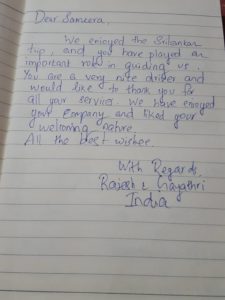 Dear Sameera,
We enjoyed the Srilankan
trip, and you have played an
important role in guiding us.
You are a very nice driver and
would like to thank you for
all your service. We have enjoyed
your company and liked your
welcoming nature.
All the best wishes.
With Regards,
Rajesh & Gayathri
India